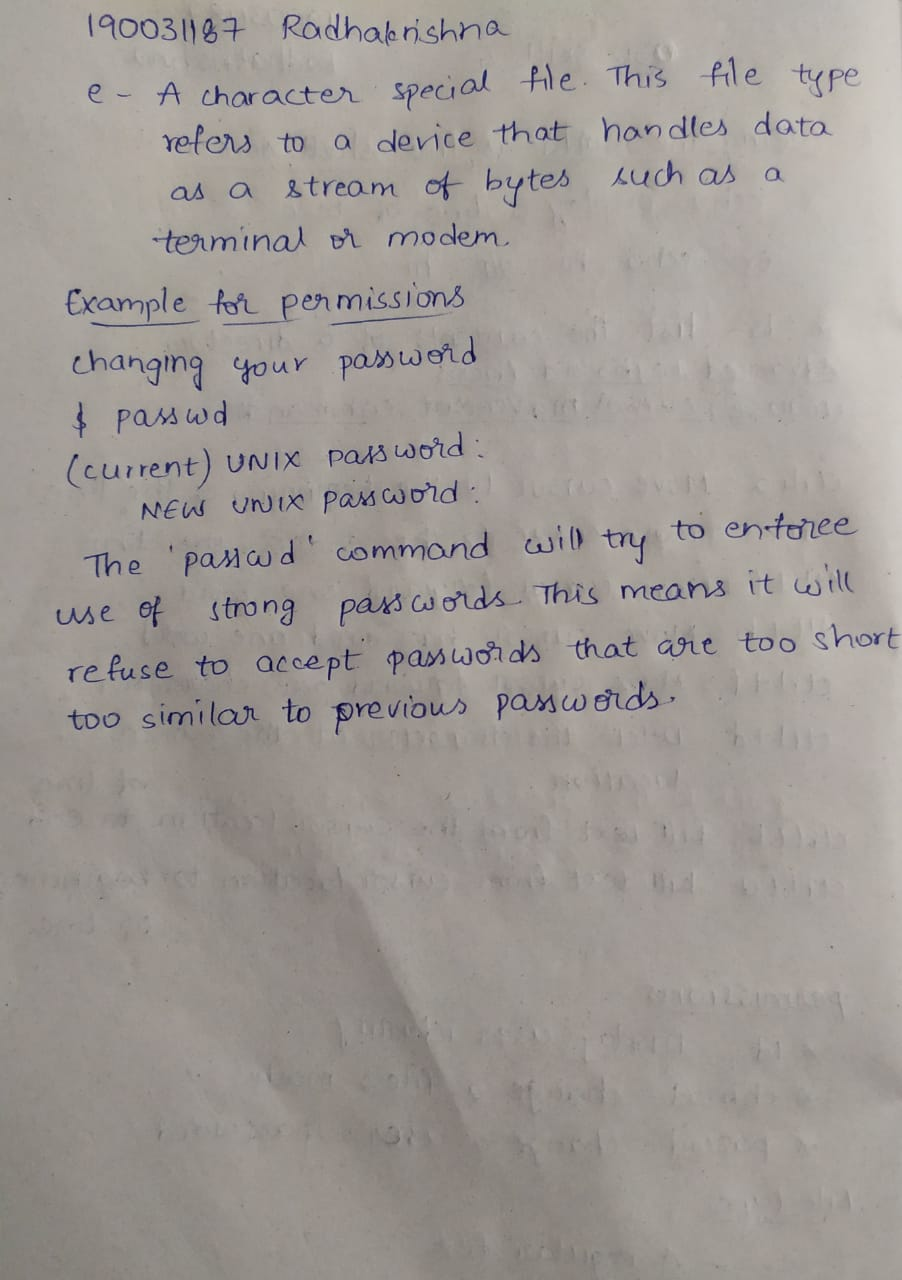 190031187 Radhakrishna
e - A character special file. This file type
refers to a device that handles data
as a stream of bytes such as a
terminal or modem.
Example for permissions
changing your password
$ passwd
(current) UNIX password :
NEW UNIX password :
The 'passwd' command will try to enforce
use of strong passwords. This means it will
refuse to accept passwords that are too short
too similar to previous passwords.